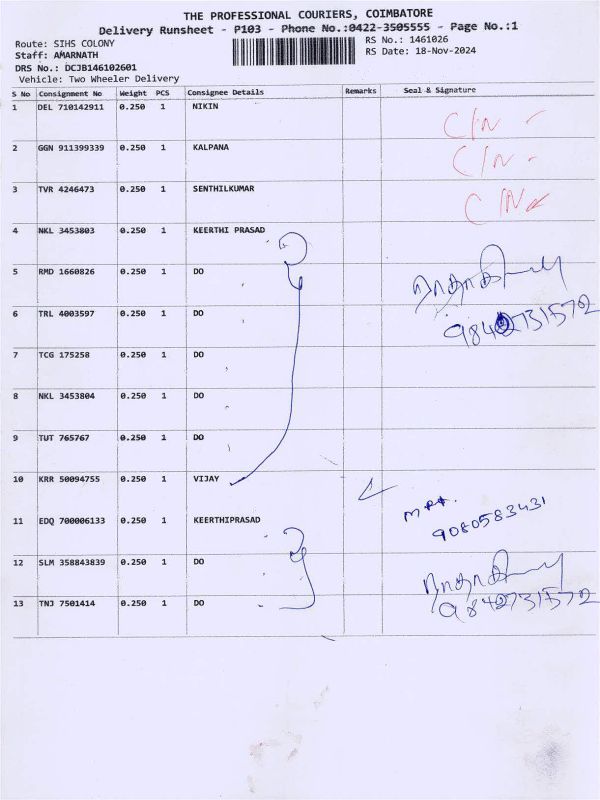 THE PROFESSIONAL COURIERS, COIMBATORE
Delivery Runsheet - P103 - Phone No.:0422-3505555 - Page No.:1
Route: SIHS COLONY
RS No.: 1461026
Staff: AMARNATH
RS Date: 18-Nov-2024
DRS No.: DCJB146102601
Vehicle: Two Wheeler Delivery
S No Consignment No Weight PCS Consignee Details Remarks Seal & Signature
1 DEL 710142911 0.250 1 NIKIN C/N
2 GGN 911399339 0.250 1 KALPANA C/N
3 TVR 4246473 0.250 1 SENTHILKUMAR C/N
4 NKL 3453803 0.250 1 KEERTHI PRASAD
5 RMD 1660826 0.250 1 DO
6 TRL 4003597 0.250 1 DO 9842731572
7 TCG 175258 0.250 1 DO
8 NKL 3453804 0.250 1 DO
9 TUT 765767 0.250 1 DO
10 KRR 50094755 0.250 1 VIJAY
11 EDQ 700006133 0.250 1 KEERTHIPRASAD 9080583431
12 SLM 358843839 0.250 1 DO
13 TNJ 7501414 0.250 1 DO 9842731572